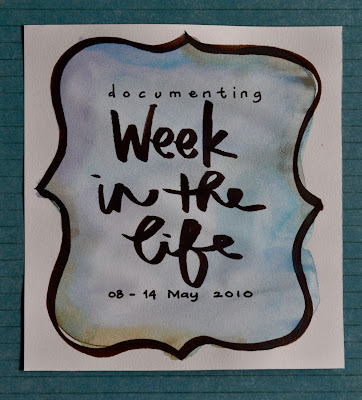 documenting
Week
in the
life
08 - 14 May 2010